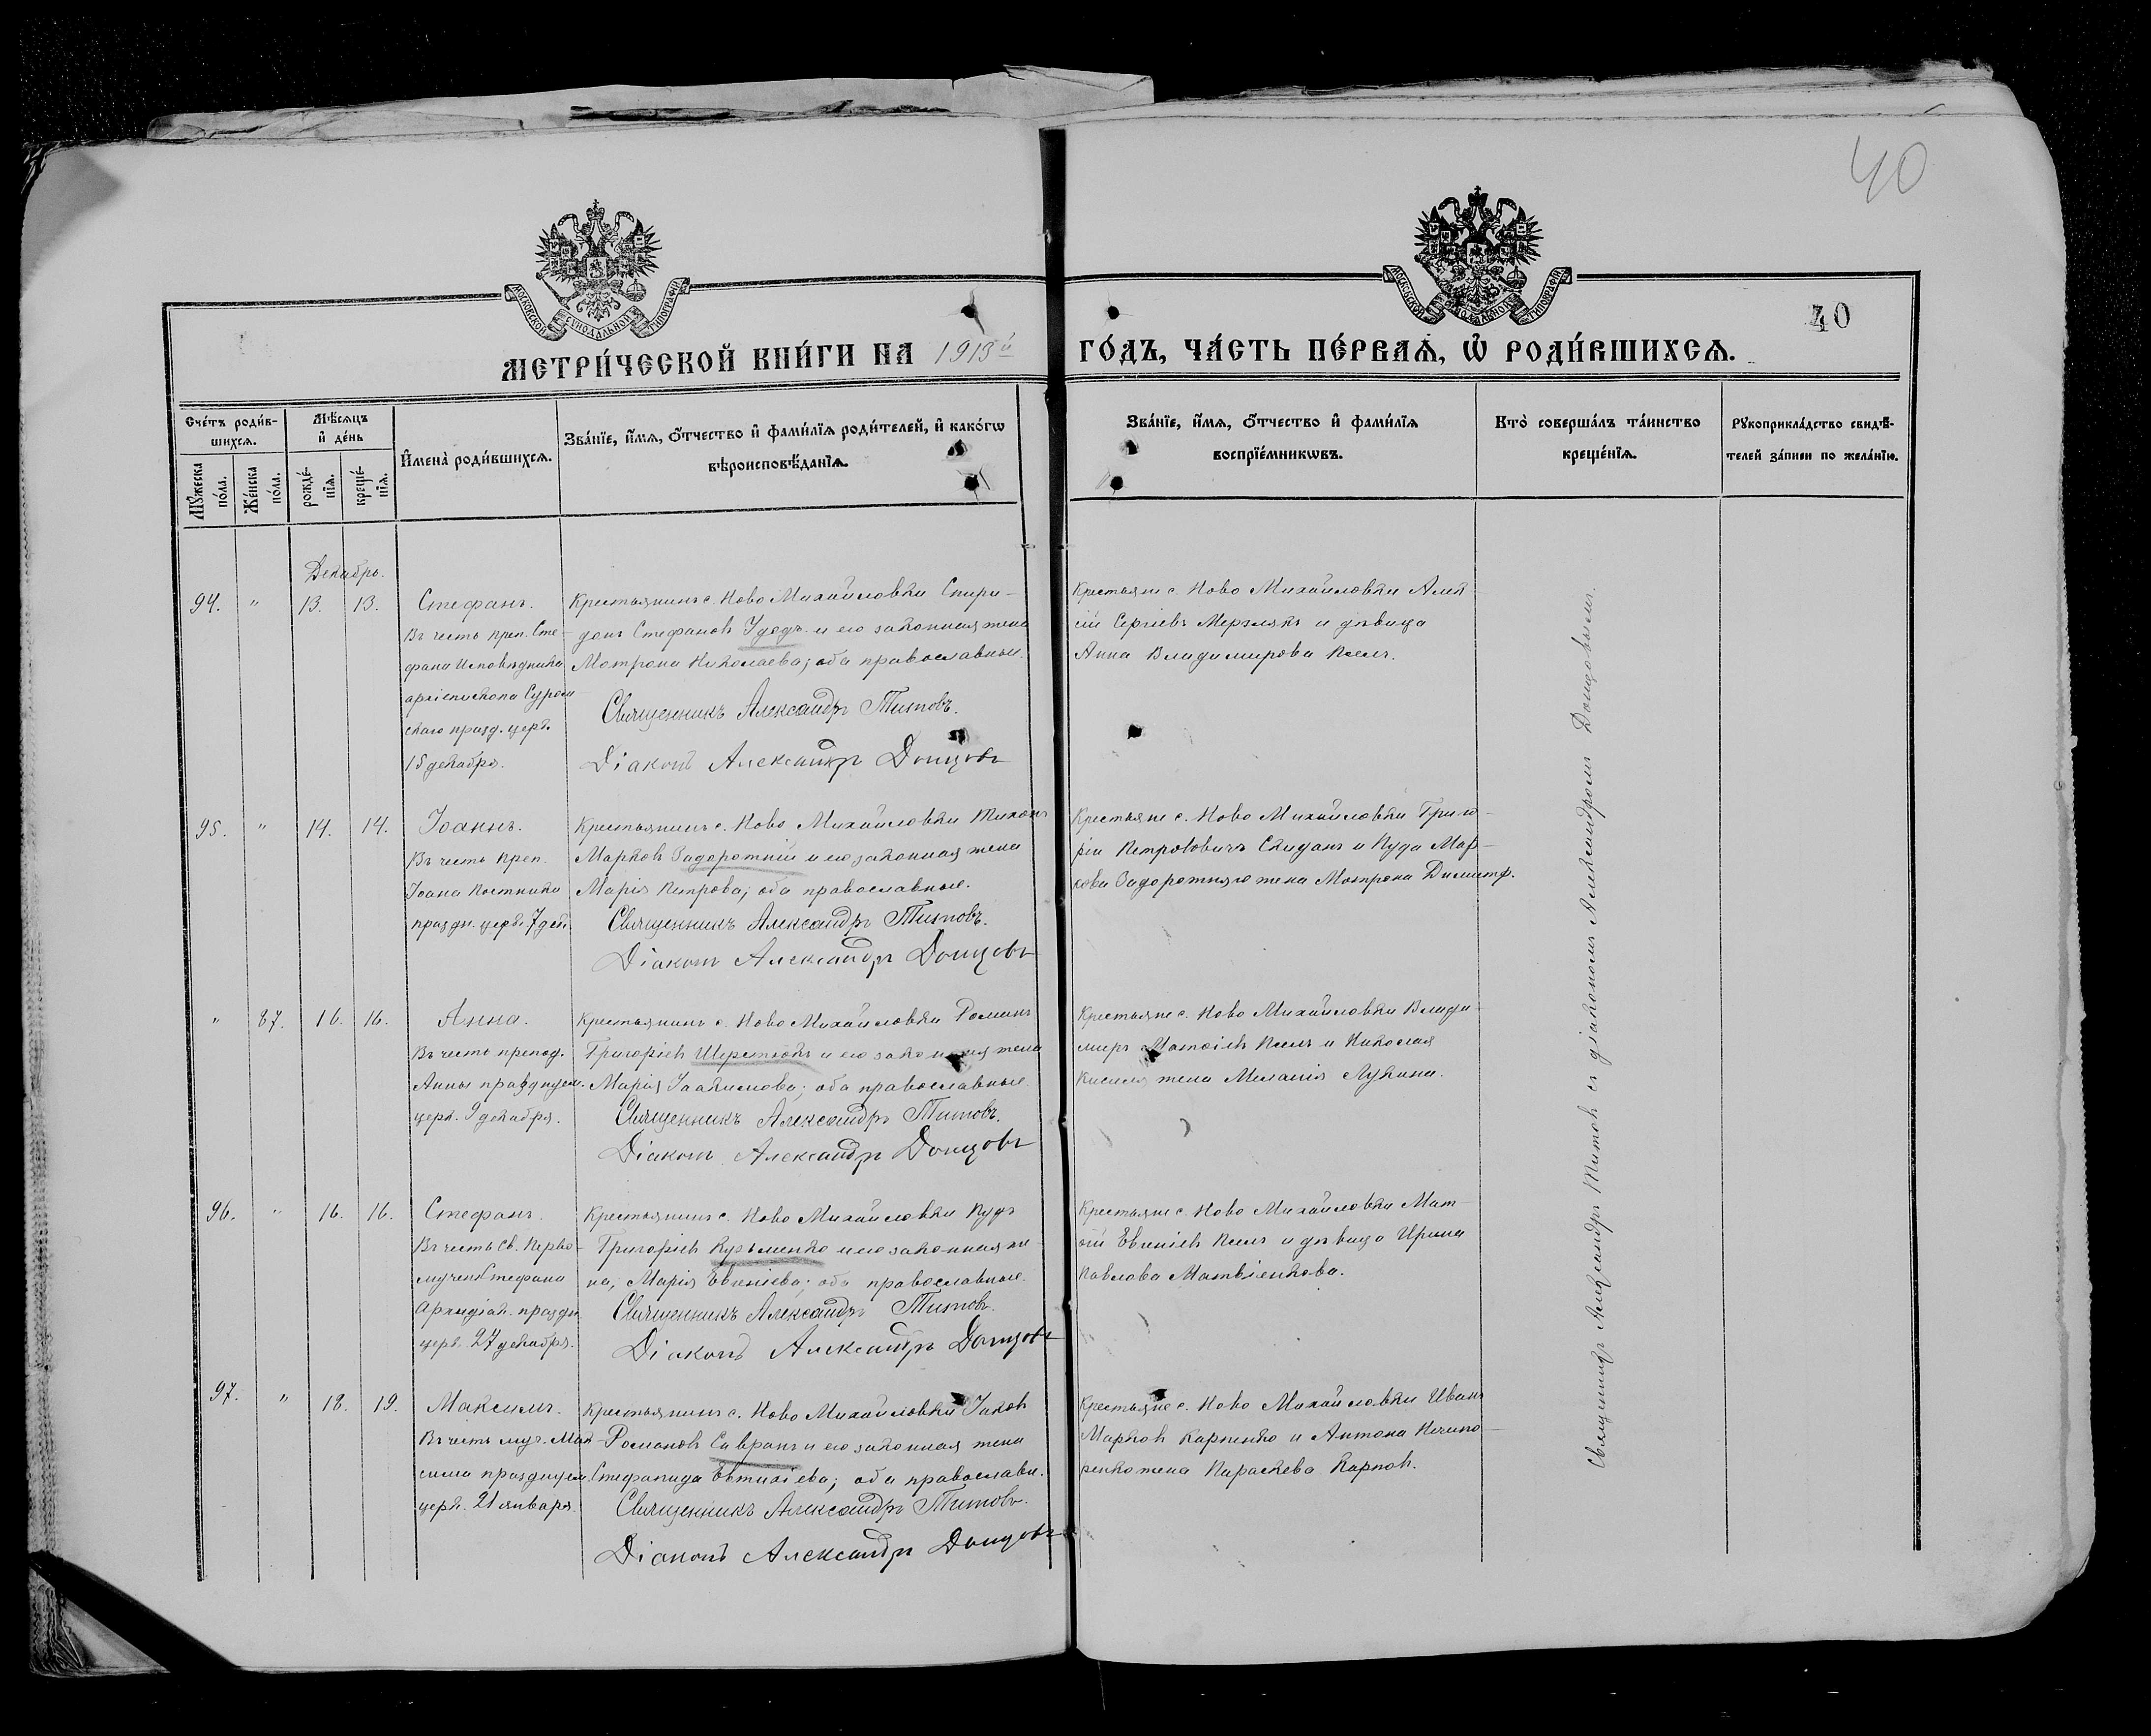 40
МОСКОВСКОЙ СѴНОДАЛЬНОЙ ТИПОГРАФІИ
МОСКОВСКОЙ СѴНОДАЛЬНОЙ ТИПОГРАФІИ
40
МЕТРИ́ЧЕСКОЙ КНИ́ГИ НА 1913й ГО́ДЪ, ЧА́СТЬ ПЕ́РВАѦ, Ѽ РОДИ́ВШИХСѦ.
Сче́тъ роди́в-
шихсѧ.
Мѣ́сѧцъ
и҆ де́нь
Мꙋ́жеска
по́ла.
Же́нска
по́ла.
рожде́-
нїѧ.
креще́-
нїѧ.
И҆мена̀ роди́вшихсѧ.
Зва́нїе, и҆́мѧ, ѻ҆́тчество и҆ фами́лїѧ роди́телей, и҆ како́гѡ
вѣроисповѣ́данїѧ.
Зва́нїе, и҆́мѧ, ѻ҆́тчество и҆ фами́лїѧ
воспрїе́мникѡвъ.
Кто̀ соверша́лъ та́инство
креще́нїѧ.
Рꙋкоприкла́дство свидѣ́-
телей за́писи по жела́нїю.
Декабрь.
94. " 13. 13.
Стефанъ.
Въ честь преп. Сте-
фана Исповѣдника
архіепископа Сурож
скаго празд. церк.
15 декабря.
Крестьянинъ с. Ново Михайловки Спири-
донъ Стефановъ Удодъ и его законная жена
Мотрона Николаева; оба православные.
Священникъ Александръ Титовъ.
Діаконъ Александръ Донцовъ
Крестьяне с. Ново Михайловки Алек
сій Сергіевъ Мерзлякъ и дѣвица
Анна Владимирова
95. " 14. 14.
Іоаннъ.
Въ честь преп.
Іоана Постника
праздн. церк. 7 дек.
Крестьянинъ с. Ново Михайловки Тихонъ
Марковъ Задорожній и его законная жена
Марія Петрова; оба православные.
Священникъ Александръ Титовъ.
Діаконъ Александръ Донцовъ
Крестьяне с. Ново Михайловки Григо-
рій Петровичъ Скиданъ и Іуда Мар-
кова Задорожняго жена Мотрона Димитр.
" 87. 16. 16.
Анна.
Въ честь препод.
Анны празднуем.
церк. 9 декабря.
Крестьянинъ с. Ново Михайловки Романъ
Григорьевъ Шереметъ и его законная жена
Марія Іоакимова; оба православные
Священникъ Александръ Титовъ.
Діаконъ Александръ Донцовъ
Крестьяне с. Ново Михайловки Влади-
миръ Матѳіевъ и Николая
Киселя жена Меланія Лукина.
96. " 16. 16.
Стефанъ.
Въ честь Св. Перво-
мучен. Стефана
Архидіак. праздн.
церк. 27 декабря.
Крестьянинъ с. Ново Михайловки
Григорьевъ Кузьменко и его законная же-
на, Марія Евгеніева; оба православные.
Священникъ Александръ Титовъ.
Діаконъ Александръ Донцовъ
Крестьяне с. Ново Михайловки Мат-
ѳій Евгеніевъ и дѣвица Ирина
Павлова Матвіенкова.
97. " 18. 19.
Максимъ.
Въ честь муч. Мак-
сима празднуем.
церк. 21 января.
Крестьянинъ с. Ново Михайловки Іаковъ
Романовъ Савранъ и его законная жена
Стефанида Евтихіева; оба православн.
Священникъ Александръ Титовъ.
Діаконъ Александръ Донцовъ
Крестьяне с. Ново Михайловки Иванъ
Марковъ Карпенко и Антона Нечипо-
ренко жена Параскева Карпов.
Священникъ Александръ Титовъ съ діакономъ Александромъ Донцовымъ.